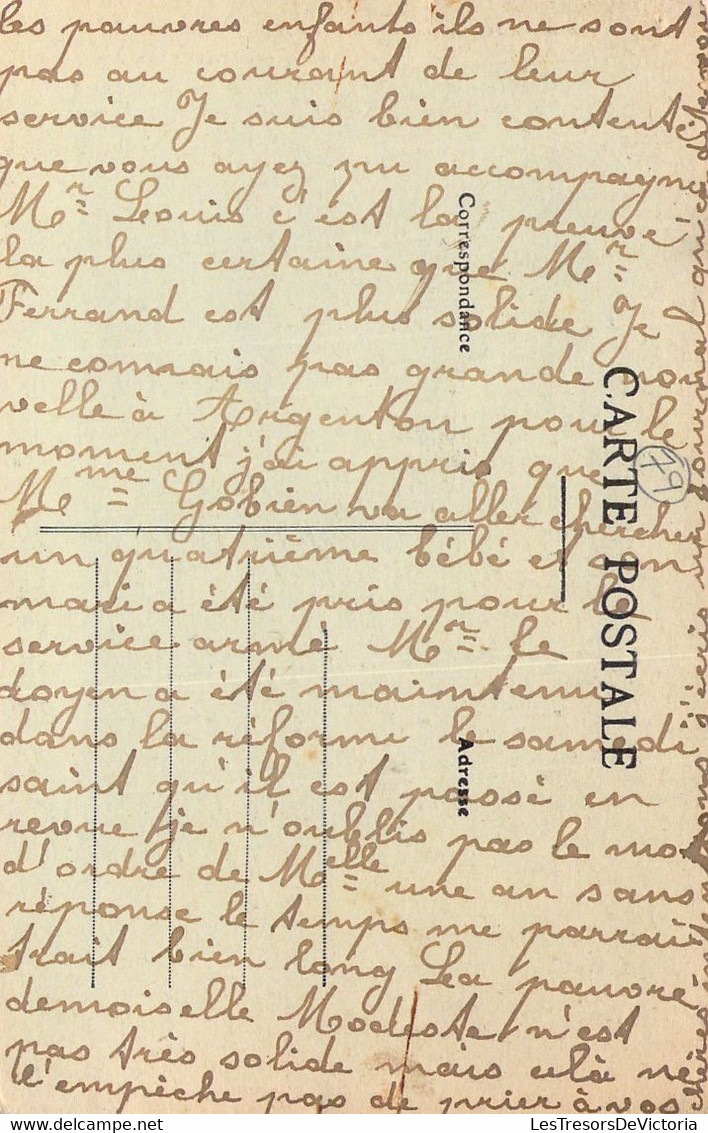 les pauvres enfants ils ne sont
pas au courant de leur
service Je suis bien contente
que vous ayez pu accompagné
Mr Louis c'est la preuve
la plus certaine que Mr
Ferrand est plus solide Je
ne connais pas grande nou
velle à Argenton pour le
moment j'ai appris que
Mme Gobien va aller chercher
un quatrième bébé et son
mari a été pris pour le
service armé Mr le
doyen a été maintenu
dans la réforme le samedi
saint qu'il est passé en
revue je n'oublis pas le mot
d'ordre de Melle une an sans
réponse le temps me parrai
trait bien long La pauvre
demoiselle Modeste n'est
pas très solide mais celà ne
l'empêche pas de prier à vos
chères
Correspondance
CARTE POSTALE
Adresse
79
LesTresorsDeVictoria